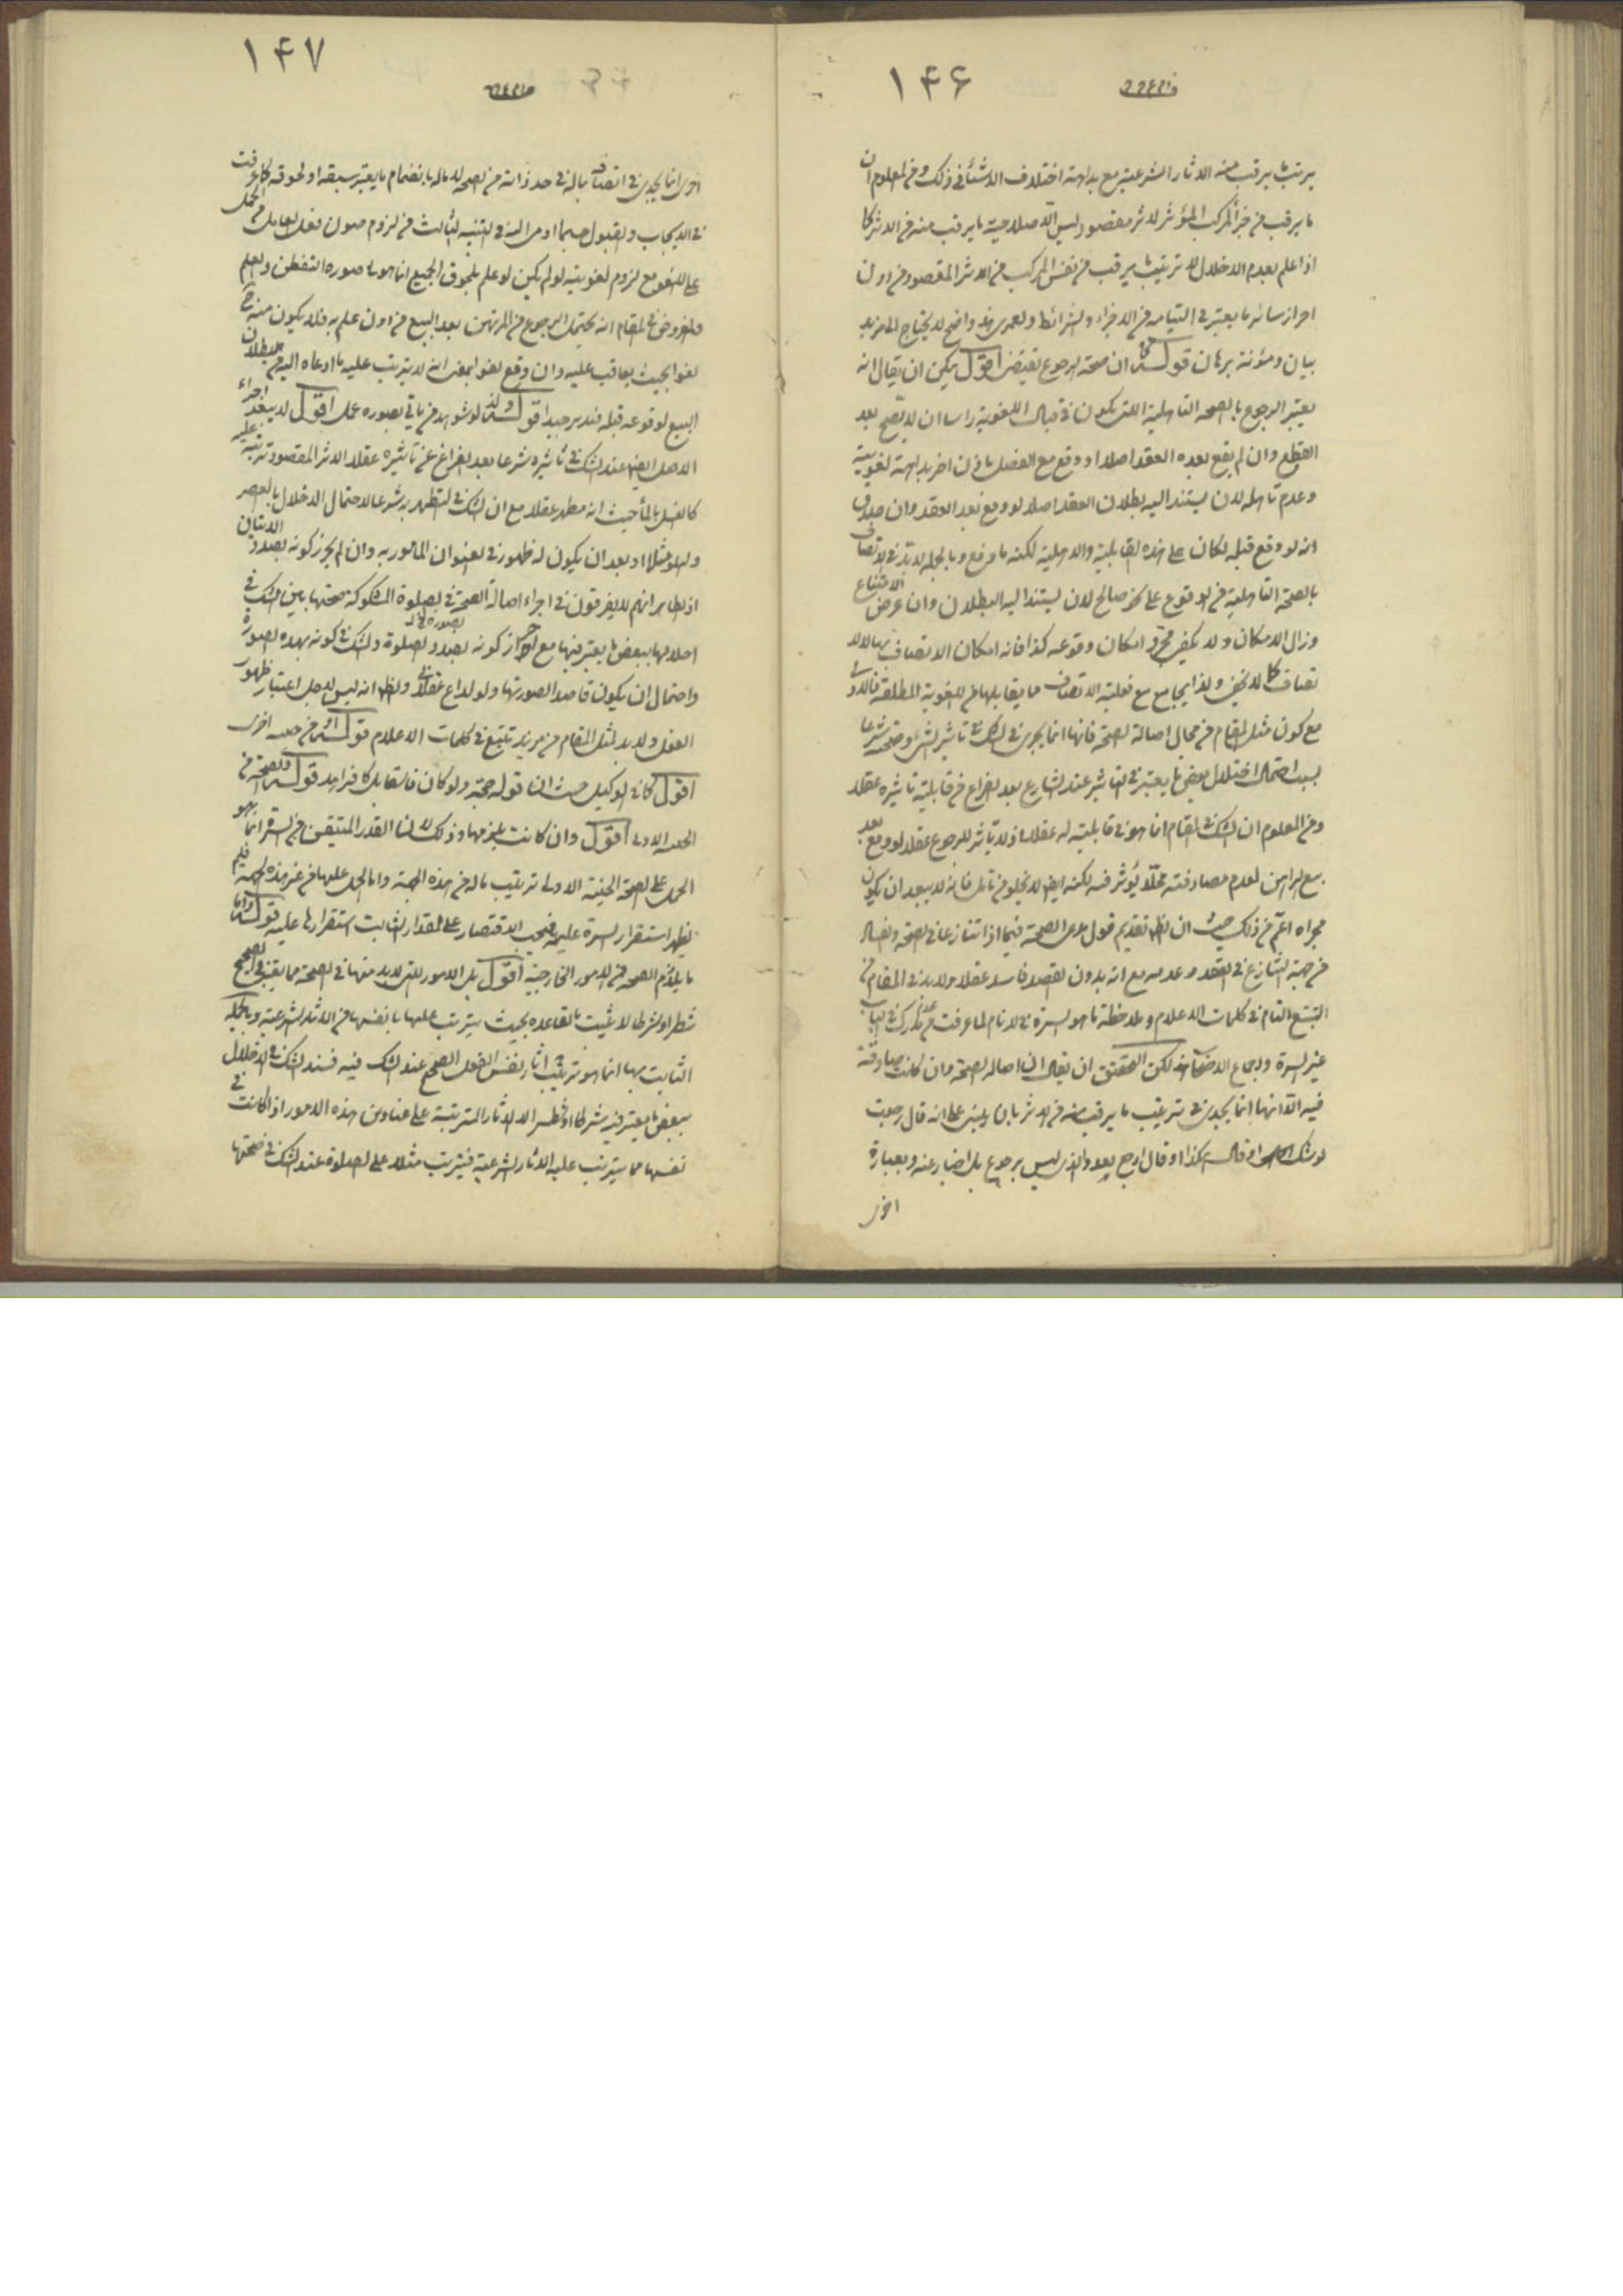 ۱۴۶
يترتب ما يرقب منه الاثار الشرعية مع بداهة اختلاف الاشياء في ذلك ومن المعلوم ان
ما يرقب من جزء المركب المؤثر لاثر مقصود ليس الا صلاحية ما يرقب منه في الاثر كما
اذا علم بعدم الاخلال لا ترتيب ما يرقب من نفس المركب من الاثر المقصود من دون
احراز سائر ما يعتبر في التيامه من الاجزاء والشرائط ولعمري هذا واضح لا يحتاج الى مزيد
بيان ومؤنة برهان قوله ان صحة الرجوع تقتضي اقول يمكن ان يقال انه
يعتبر الرجوع بالصحة التاهلية التي يكون في قبال اللغوية راسا ان لا يقع بعد
القطع وان لم يقع بعده العقد اصلا او وقع مع الفضل باذن اخر بداهة لغويته
وعدم تاهله لان يستند اليه بطلان العقد اصلا لو وقع بعد العقد وان صدق
انه لو وقع قبله لكان على هذه القابلية والاهلية لكنه ما وقع وبالجملة لابد في الاتصاف
بالصحة التاهلية من الوقوع على نحو صالح لان يستند اليه البطلان وان عرض الامتناع
وزال الامكان ولا يكفي مجرد امكان وقوعه كذا فانه امكان الاتصاف بها لا الا
تصاف كما لا يخفى ولذا يجامع مع فعلية الاتصاف بما يقابلها من اللغوية المطلقة فالاولى
مع كون مثل المقام من مجال اصالة الصحة فانها انما يجري في الشك في تاثير الشيء وصحته شرعا
بسبب احتمال اختلال بعض ما يعتبر في التاثير عند الشارع بعد الفراغ من قابلية تاثيره عقلا
ومن المعلوم ان الشك في المقام انما هو في قابليته له عقلا اذ لا تاثير للرجوع عقلا لو وقع بعد
بيع الراهن لعدم مصادفته محلا يؤثر فيه لكنه ايضا لا يخلو من تامل فانه لا يبعد ان يكون
مجراه اعم من ذلك حيث ان الظاهر تقديم قول مدعي الصحة فيما اذا تنازعا في الصحة والفساد
من جهة التنازع في القصد وعدمه مع انه بدون القصد فاسد عقلا ولابد في المقام من
التتبع التام في كلمات الاعلام وملاحظة ما هو السيرة في الانام لما عرفت من عدم مدرك في الباب
غير السيرة واجماع الاصحاب لكن التحقيق ان يقال ان اصالة الصحة وان كانت صادقة
فيه الا انها انما يجدي في ترتيب ما يرقب منه من الاثر بان يبنى على انه قال رجعت
لو شك او قال هكذا او قال ارجع بعد والذي ليس برجوع بل اخبار عنه وبعبارة
اخرى
۱۴۷
اخرى انما يجدي في اتصافه بما له في حد ذاته من الصحة لا بما له بانضمام ما يعتبر سبقه او لحوقه كما عرفت
في الايجاب والقبول حسبما اومى اليه في التنبيه الثالث من لزوم صون فعل العاقل من الحمل
على اللغو مع لزوم لغويته لو لم يكن لو علم بلحوق الجميع انما هو في صورة التفطن والعلم
والمفروض في المقام انه يحتمل الرجوع من المرتهن بعد البيع من دون علم به فلا يكون منه ح
لغوا بحيث يعاقب عليه وان وقع لغوا بمعنى انه لا يترتب عليه ما ادعاه اليه من بطلان
البيع لوقوعه قبله فتدبر جيدا قوله ولذا لو شوهد من ياتي بصورة عمل اقول لا يبعد اجراء
الاصل ايضا عند الشك في تاثيره شرعا بعد الفراغ عن تاثيره عقلا الاثر المقصود ترتبه عليه
كالغسل بالماء حيث انه مطهر عقلا مع ان الشك في التطهر به شرعا لاحتمال الاخلال بالعصر
ولعله مثلا او بعد ان يكون له ظهور في العنوان المامور به وان لم يحرز كونه بصدد الاتيان
اذ الظاهر انهم لا يفرقون في اجراء اصالة الصحة في الصلوة المشكوكة صحتها بين الشك في
اخلالها ببعض ما يعتبر فيها مع احراز كونه بصدد الصلوة والشك في كونه بهذه الصورة
واحتمال ان يكون قاصدا لصورتها ولو لداع عقلائي والظاهر انه ليس لاجل اعتبار ظهور
الفعل ولابد لمثل المقام من مزيد تتبع في كلمات الاعلام قوله من جهة اخرى
اقول كما في الوكيل حيث ان قوله حجة ولو كان فاسقا بل كافرا قوله والصحة من
الجهة الاولى اقول وان كانت يلزمها وذلك لان القدر المتيقن من السيرة انما هو
الحمل على الصحة من الحيثية الاولى ترتيب ما له من هذه الجهة واما الحمل عليها من غير هذه الجهة فلم
يظهر استقرار السيرة عليه فيجب الاقتصار على المقدار الثابت استقرارها عليه قوله واما
ما يلازم الصحة من الامور الخارجية اقول بل الامور التي لابد منها في الصحة مما يعتبر في الصحيح
شطرا او شرطا لا يثبت بالقاعدة بحيث يترتب عليها ما بانفسها من الاثار الشرعية وبالجملة
الثابت بها انما هو ترتيب آثار نفس الفعل الصحيح عند الشك فيه فسند الشك في الاخلال
ببعض ما يعتبر فيه شرطا او شطرا لا الاثار المترتبة على عناوين هذه الامور اذا كانت في
نفسها مما يترتب عليه الاثار الشرعية فيترتب مثلا على الصلوة عند الشك في صحتها